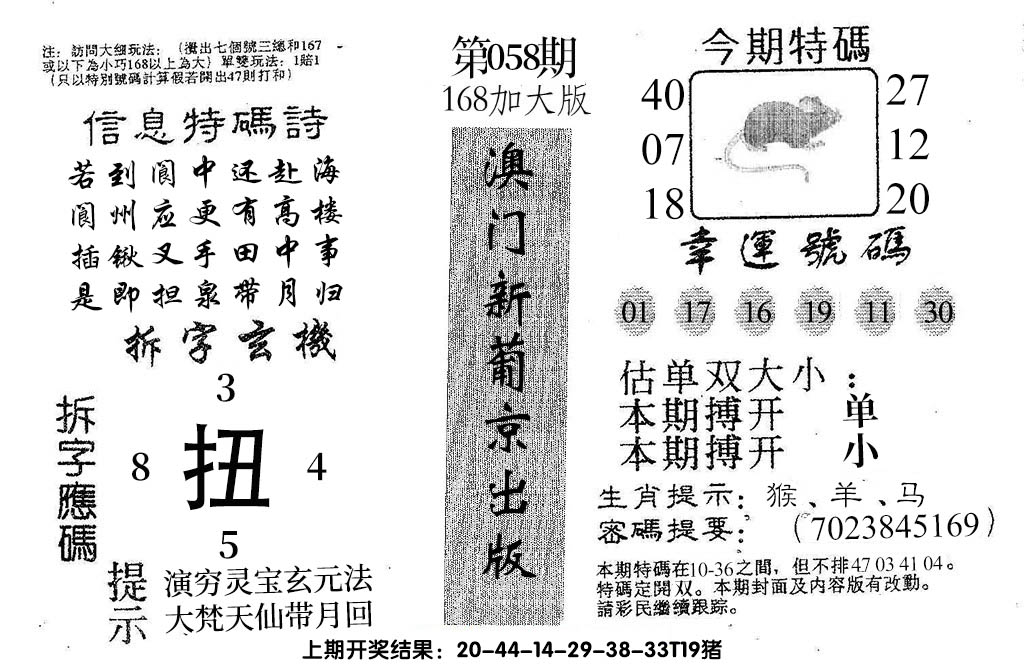 注：訪問大细玩法：（攪出七個號三總和167
或以下為小巧168以上為大）單雙玩法：1賠1
（只以特別號碼計算假若開出47則打和）
信息特碼詩
若到阆中还赴海
阆州应更有高楼
插锹叉手田中事
是即担泉帶月归
拆字玄機
3
8 扭 4
5
拆字應碼
提示
演穷灵宝玄元法
大梵天仙带月回
第058期
168加大版
澳门新葡京出版
今期特碼
40 27
07 12
18 20
幸運號碼
01 17 16 19 11 30
估单双大小：
本期搏开 单
本期搏开 小
生肖提示：猴、羊、马
密碼提要：（7023845169）
本期特碼在10-36之間，但不排47 03 41 04。
特碼定開双。本期封面及内容版有改動。
請彩民繼續跟踪。
上期开奖结果：20-44-14-29-38-33T19猪